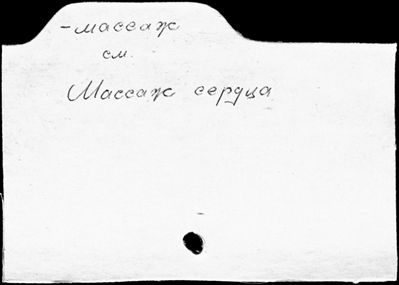 -массаж
см.
Массаж сердца